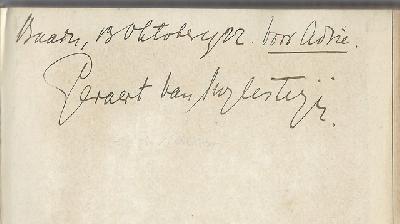 Baarn, 13 Oktober 1922. voor Adrie.
Geraert van Suylesteijn.